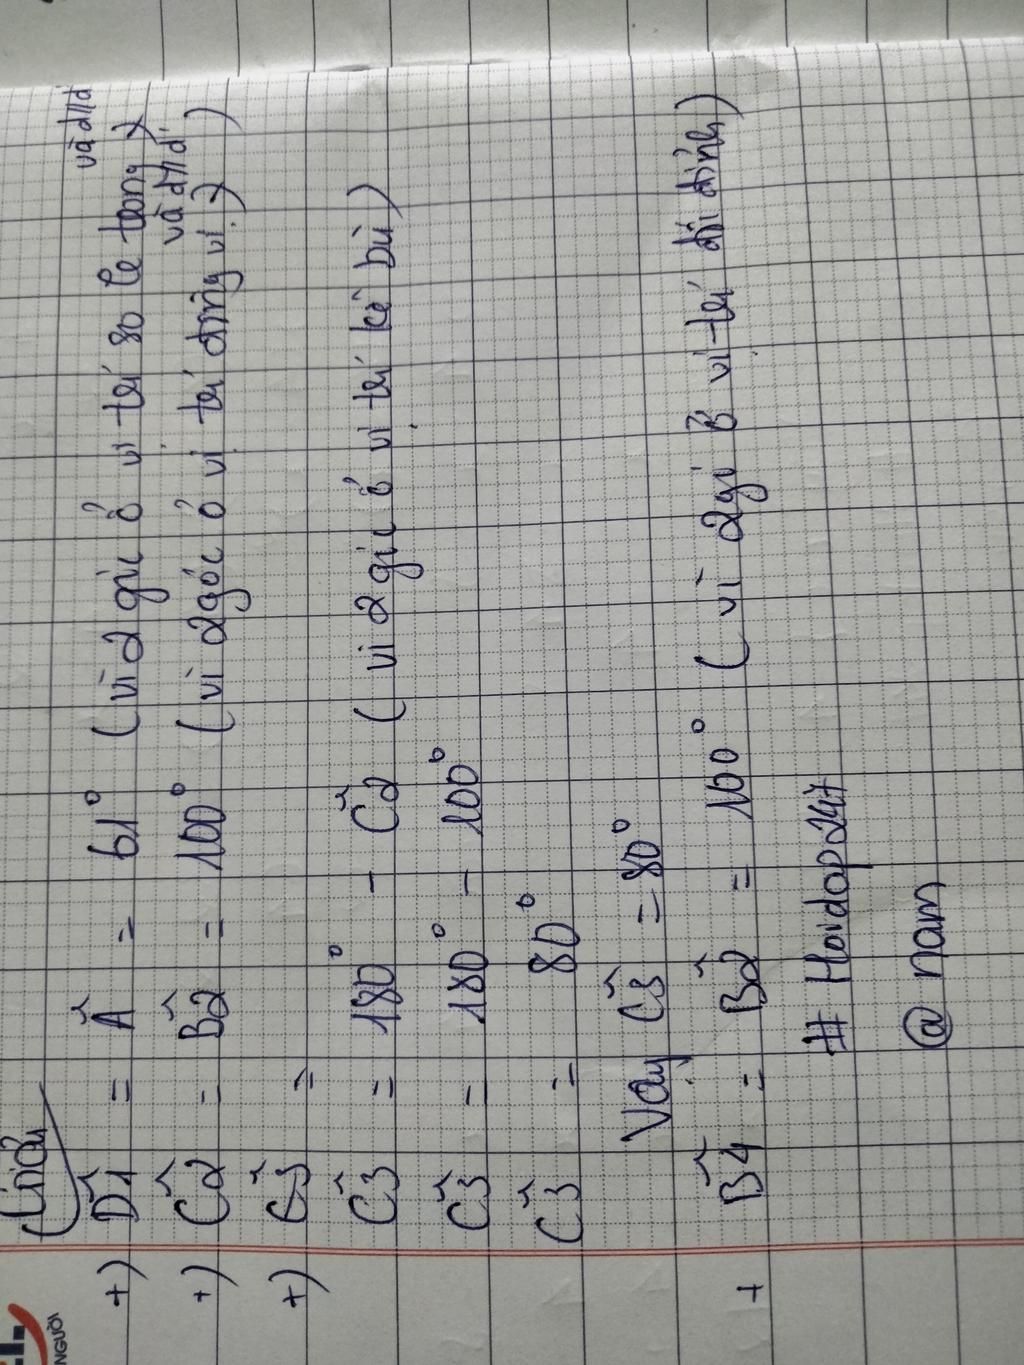 Giải
và d//d'
+) D̂1 = Â = 61° (vì 2 góc ở vị trí so le trong)
và d//d'
+) Ĉ2 = B̂2 = 100° (vì 2 góc ở vị trí đồng vị)
+) Ĉ3 =
Ĉ3 = 180° - Ĉ2 (vì 2 góc ở vị trí kề bù)
Ĉ3 = 180° - 100°
Ĉ3 = 80°
Vậy Ĉ3 = 80°
+ B̂4 = B̂2 = 100° (vì 2 gị ở vị trí đối đỉnh)
# Hoidap247
@ nam
NGƯỜI